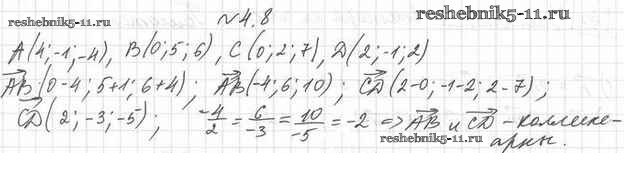 №4.8
www.reshebnik5-11.ru
A(4;-1;-4), B(0;5;6), C(0;2;7), D(2;-1;2)
AB(0-4; 5+1; 6+4); AB(-4;6;10); CD(2-0; -1-2; 2-7);
CD(2;-3;-5); -4/2 = 6/-3 = 10/-5 = -2 => AB и CD - коллине-
арны.
www.reshebnik5-11.ru